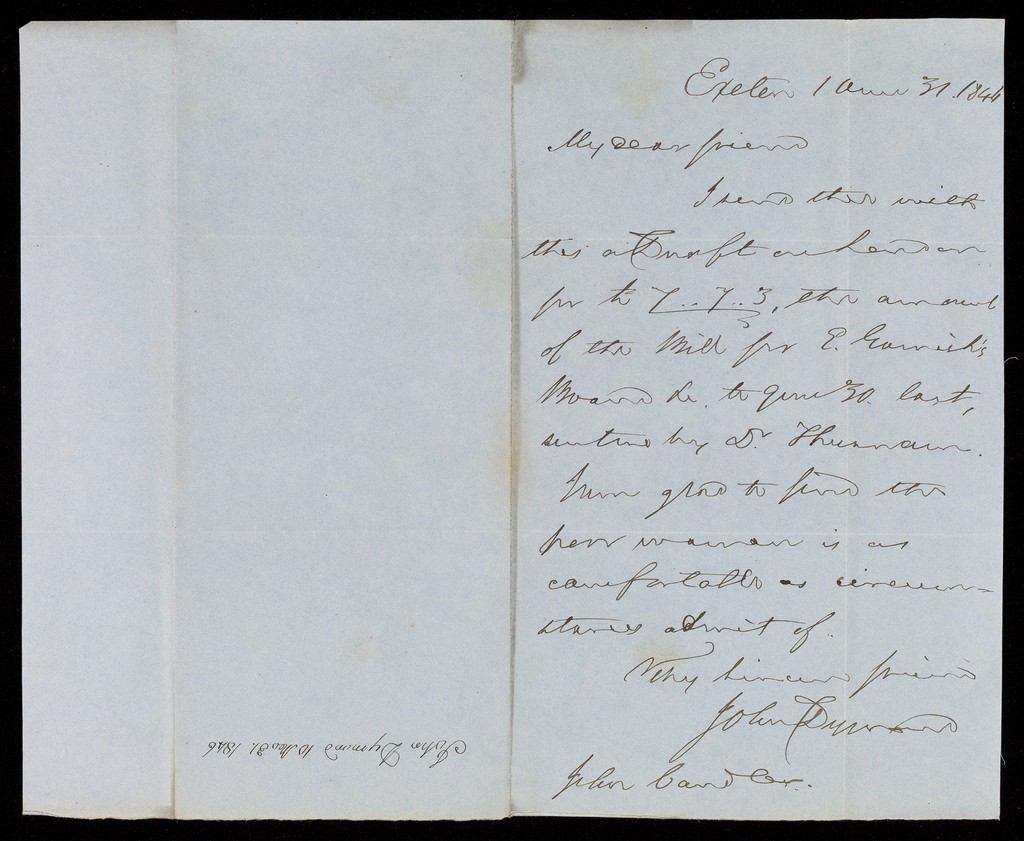 Exeter 10mo 31. 1846
My dear friend
I send thee with
this a Draft on London
for £ 7..7..3, the amount
of the Bill for E. 
Board &c. to 9mo 30. last,
sent me by Dr Thurnam.
I am glad to find the
poor woman is as
comfortable as circum=
stances admit of.
Very sincere friend
John Dymond
John Candler.
John Dymond 10 Mo 31. 1846